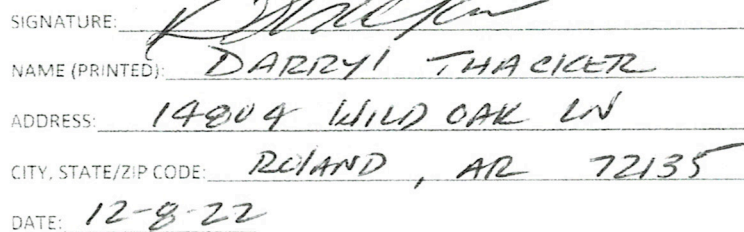 SIGNATURE:
NAME (PRINTED): DARRYl THACKER
ADDRESS: 14804 WILD OAK LN
CITY, STATE/ZIP CODE: ROlAND, AR 72135
DATE: 12-8-22